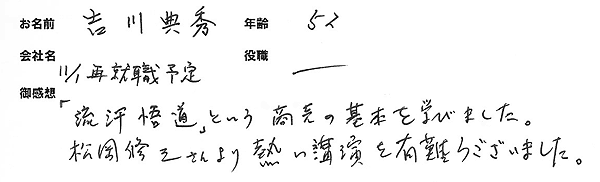 お名前 吉川典秀 年齢 52
会社名 役職 ー
11/1再就職予定
御感想
「流汗悟道」という商売の基本を学びました。
松岡修三さんより熱い講演を有難うございました。